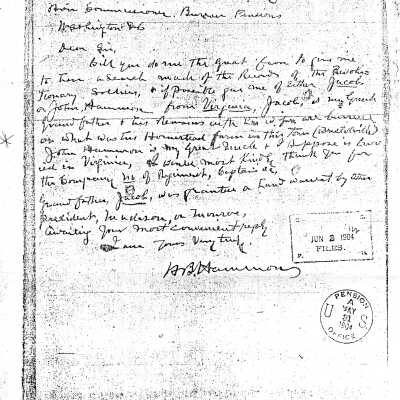 Hon Commissioner, Bureau Pensions
Washington DC
Dear Sir,
Will you do me the great favor to give me
to have a search made of the Records of the Revolu-
tionary Soldiers, & if possible give me of either Jacob
or John Hammon from Virginia, Jacob, is my Great
grandfather & his Remains with his wife are buried
on what was his Homestead farm in this Town
John Hammon is my Great Uncle & I suppose is buried
in Virginia, I would most kindly thank you for
the Company, No of Regiment, Captain &c,
Grandfather, Jacob, was granted a Land warrant by either
president, Madison, or Monroe,
Awaiting your most convenient reply
I am yours Very truly,
H B Hammons
JUN 2 1904
FILES.
PENSION OFFICE
U S
A
MAY
31
1904